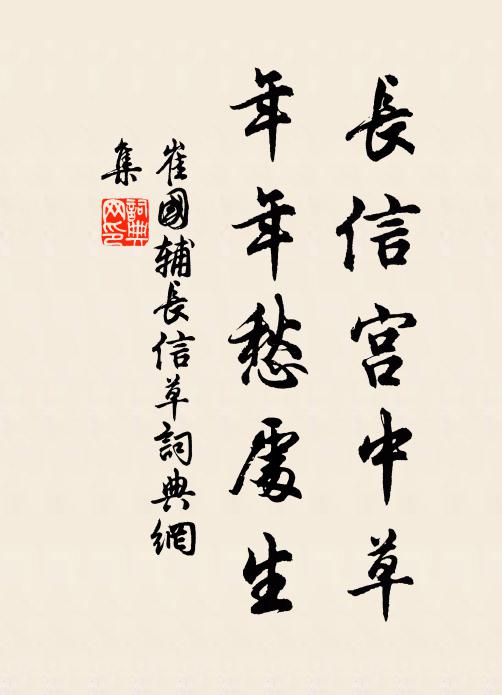 長信宮中草
年年愁處生
崔國輔長信草詞典網
集
詞典
网印